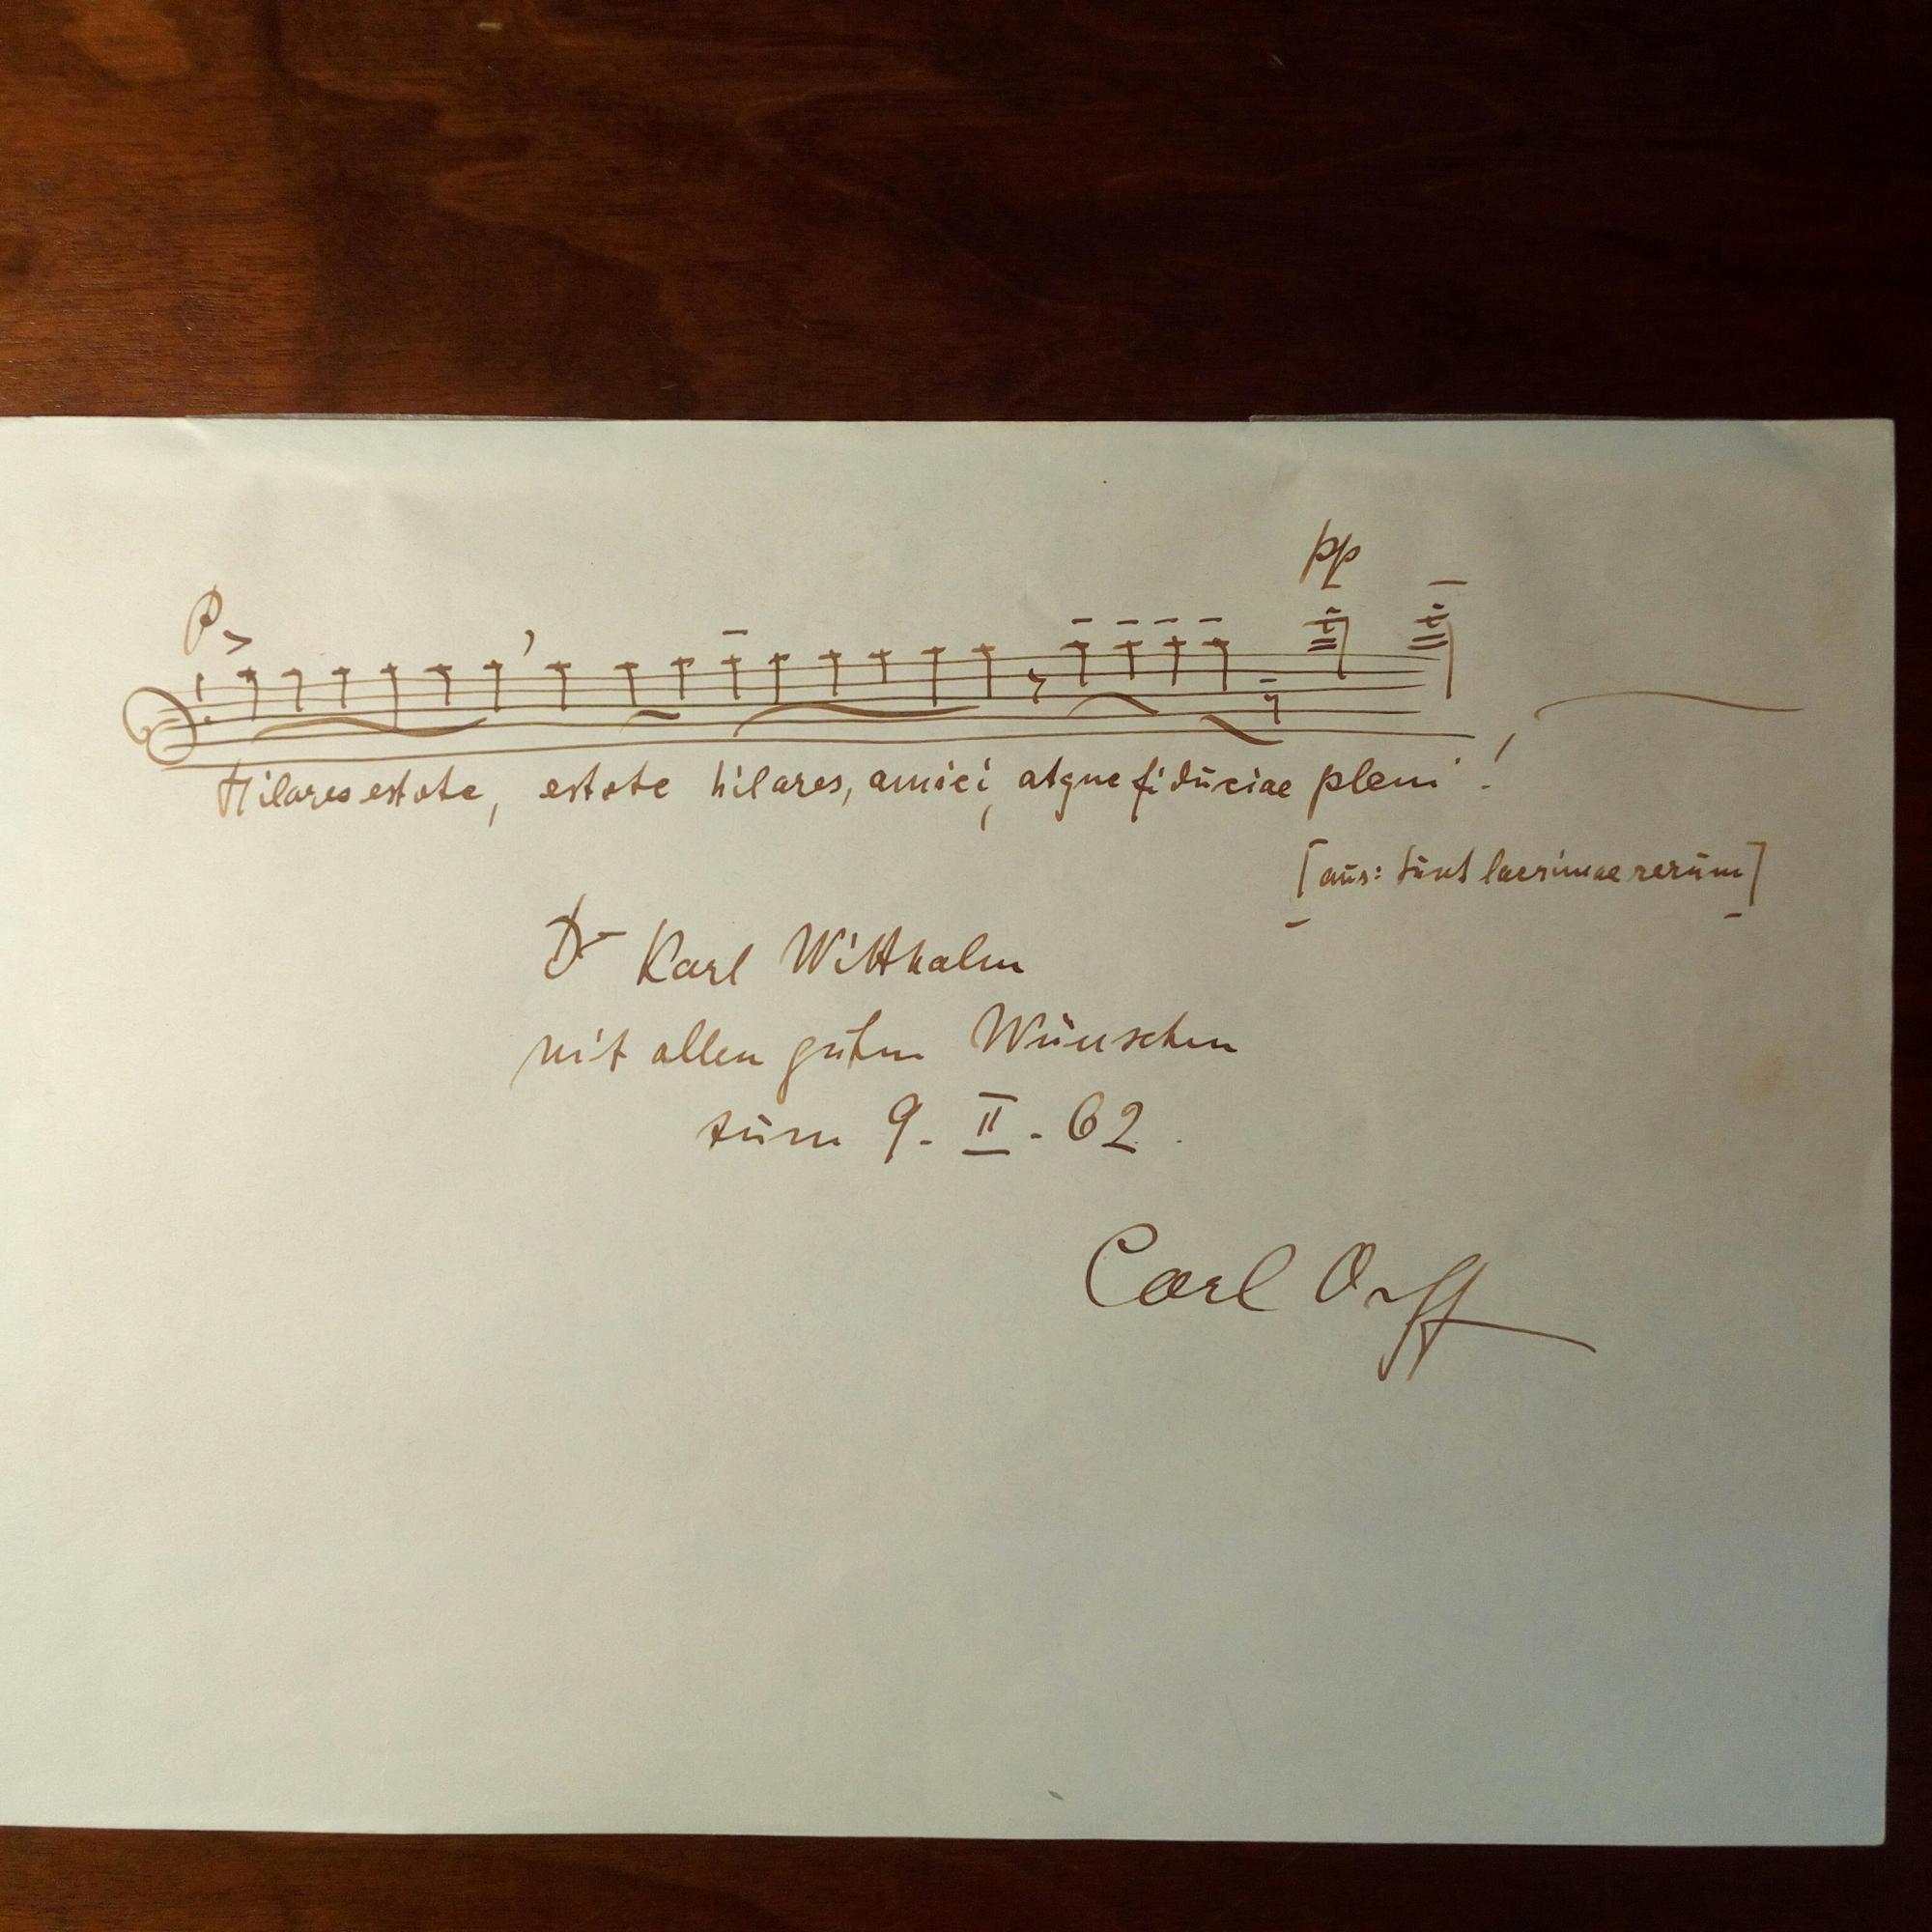 p pp
Hilares estote, estote hilares, amici, atque fidūciae pleni!
[aūs: Sūnt lacrimae rerūm]
Dr Karl Witthalm
mit allen gūten Wünschen
zūm 9. II. 62.
Carl Orff